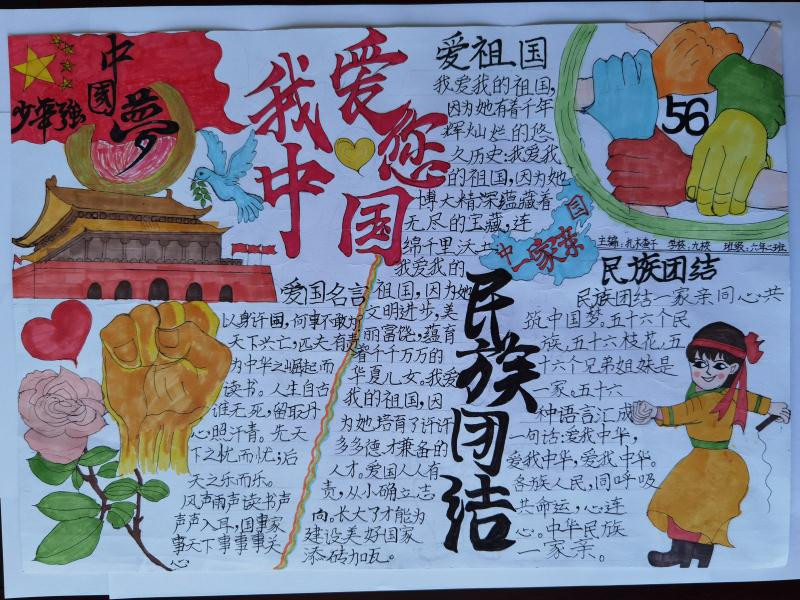 中國夢
少年强
我爱您
中国
爱祖国
我爱我的祖国,
因为她有着千年
辉灿烂的悠
久历史;我爱我
的祖国,因为她
博大精深蕴藏着
无尽的宝藏,连
绵千里沃土
我爱我的
祖国,因为她
文明进步,美
丽富饶,蕴育
着千千万万的
华夏儿女。我爱
我的祖国,因
为她培育了许许
多多德才兼备的
人才。爱国人人有
责,从小确立志
向。长大了才能为
建设美好国家
添砖加瓦。
爱国名言
以身许国,何事不敢为
天下兴亡,匹夫有责
为中华之崛起而
读书。人生自古
谁无死,留取丹
心照汗青。先天
下之忧而忧,后
天之乐而乐。
风声雨声读书声
声声入耳,国事家
事天下事事事关
心
56
中国
一家亲
主编:扎木苏 学校:九校 班级:六年二班
民族团结
民族团结
民族团结一家亲同心共
筑中国梦,五十六个民
族,五十六枝花,五
十六个兄弟姐妹是
一家,五十六
种语言汇成
一句话:爱我中华,
爱我中华,爱我中华。
各族人民,同呼吸
共命运,心连
心。中华民族
一家亲。